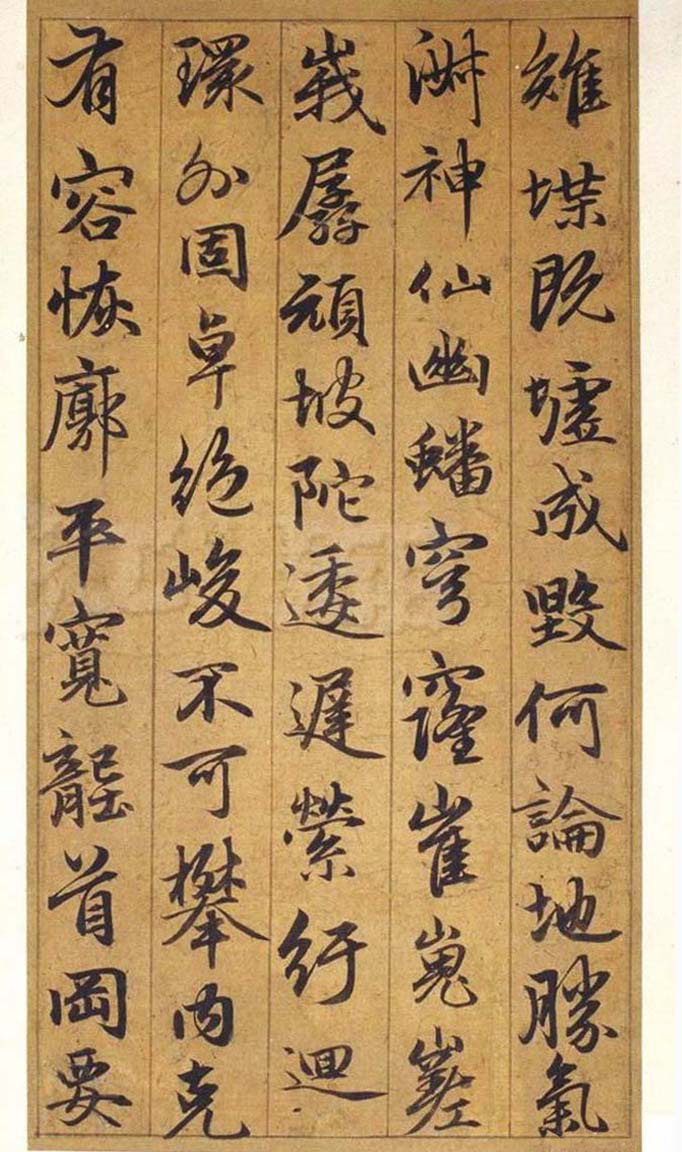 雉堞既墟成毀何論地勝氣
淋神仙幽蟠穹窿崔嵬嵳
峩孱頑坡陀逶遲縈紆迴
環外固卓絶峻不可攀内克
有容恢廓平寬龍首岡要